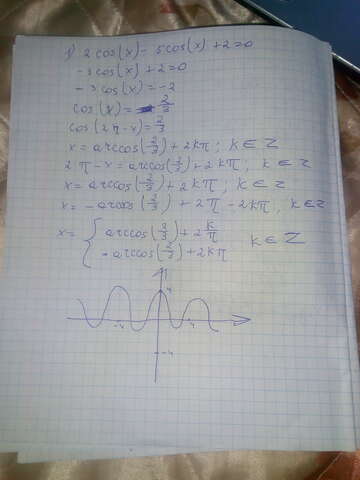 1) 2cos(x) - 5cos(x) + 2 = 0
-3cos(x) + 2 = 0
-3cos(x) = -2
cos(x) = 2/3
cos(2π - x) = 2/3
x = arccos(2/3) + 2kπ; k ∈ Z
2π - x = arccos(2/3) + 2kπ; k ∈ Z
x = arccos(2/3) + 2kπ; k ∈ Z
x = -arccos(2/3) + 2π - 2kπ, k ∈ Z
x = { arccos(2/3) + 2kπ
-arccos(2/3) + 2kπ k ∈ Z
4
-4 4
-4